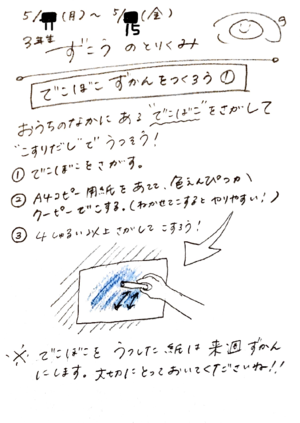 5/11(月)〜 5/15(金)
3年生 ずこう のとりくみ
でこぼこ ずかんをつくろう①
おうちのなかに ある"でこぼこ"をさがして
"こすりだし"で うつそう!
① でこぼこをさがす。
② A4コピー用紙をあてて、色えんぴつか
クーピーでこする。(ねかせてこするとやりやすい!)
③ 4しゅるい以上さがしてこすろう!
※ でこぼこを うつした紙は 来週 ずかん
にします。大切にとっておいてくださいね!!